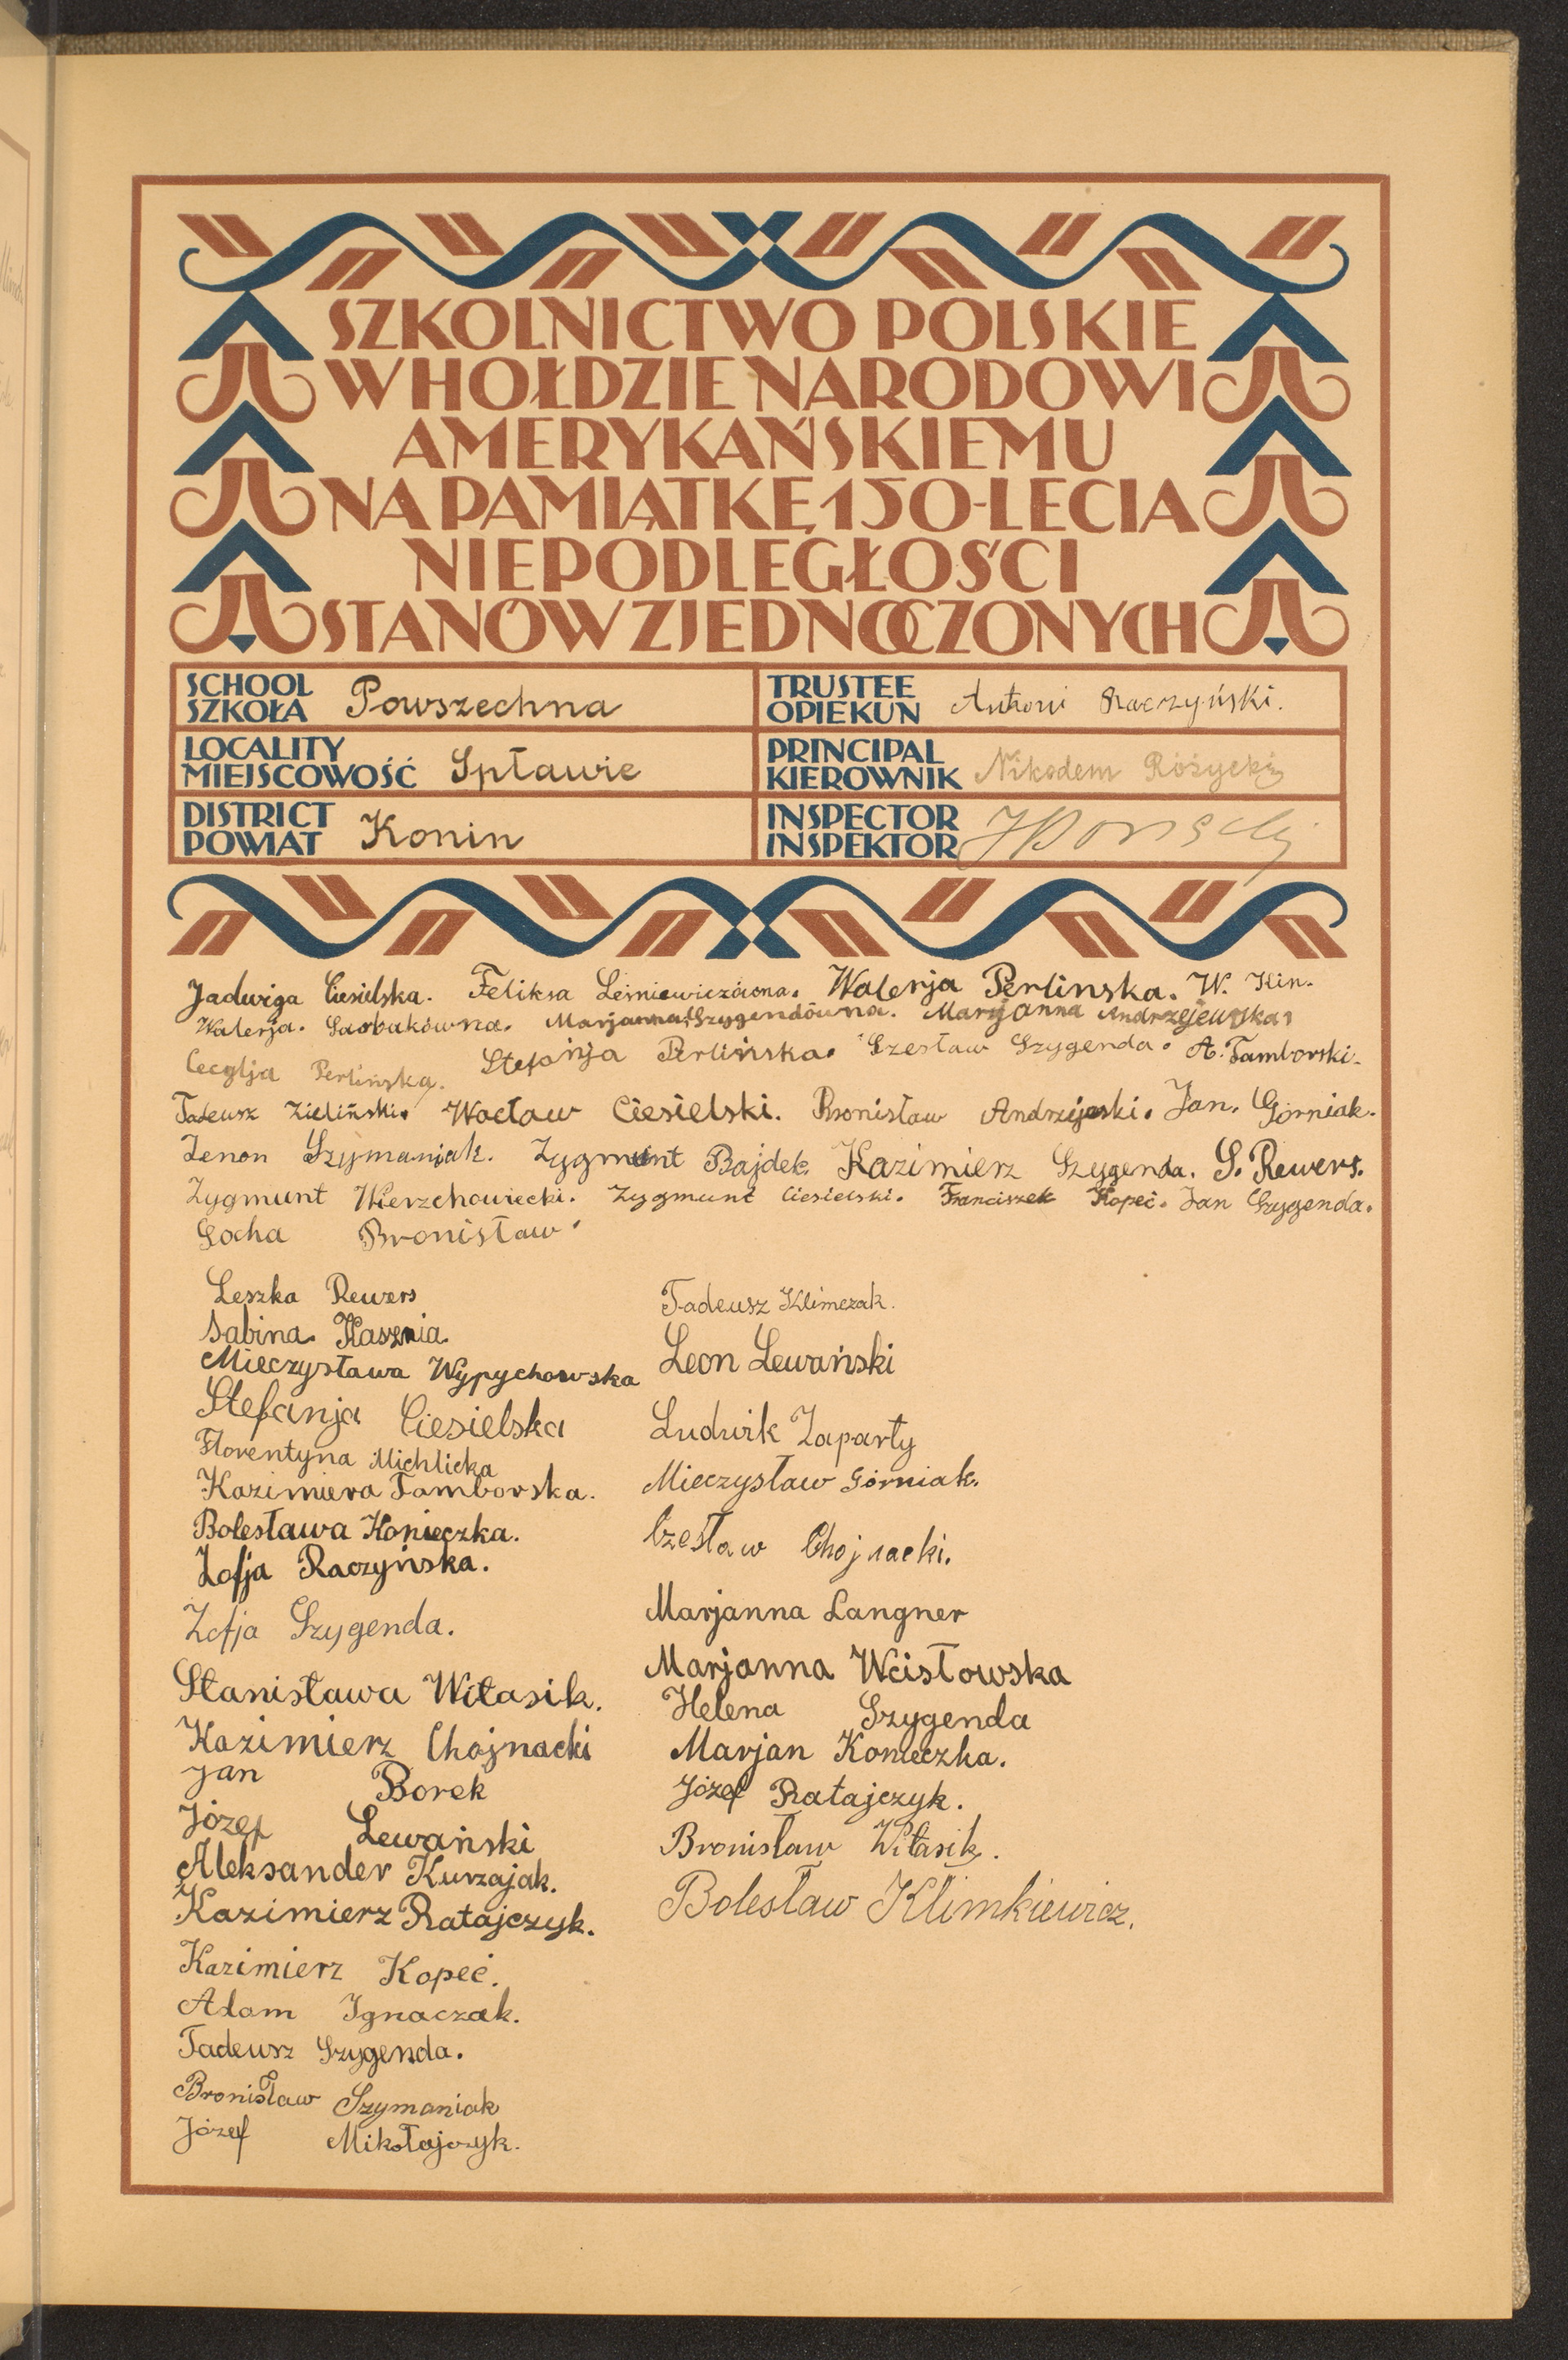 SZKOLNICTWO POLSKIE
W HOŁDZIE NARODOWI
AMERYKAŃSKIEMU
NA PAMIĄTKĘ 150-LECIA
NIEPODLEGŁOŚCI
STANÓW ZJEDNOCZONYCH
SCHOOL
SZKOŁA Powszechna
TRUSTEE
OPIEKUN Antoni Raczyński.
LOCALITY
MIEJSCOWOŚĆ Spławie
PRINCIPAL
KIEROWNIK Nikodem Różycki
DISTRICT
POWIAT Konin
INSPECTOR
INSPEKTOR
Jadwiga Ciesielska. Feliksa Leśniewiczówna. Walerja Perlinska. W. Kin.
Walerja. Garbakówna. Marjanna Szygendówna. Marjanna Andrzejewska
Cecylja Perlińska. Stefanja Perlińska. Czesław Szygenda. A. Tamborski.
Tadeusz Zieliński. Wacław Ciesielski. Bronisław Andrzejeski. Jan. Górniak.
Zenon Szymaniak. Zygmunt Bajdek. Kazimierz Szygenda. S. Rewers.
Zygmunt Wierzchowiecki. Zygmunt Ciesielski. Franciszek Kopeć. Jan Szygenda.
Socha Bronisław
Leszka Rewers
Sabina Kasznia
Mieczysława Wypychowska
Stefanja Ciesielska
Florentyna Michlicka
Kazimiera Tamborska.
Bolesława Konieczka.
Zofja Raczyńska.
Zofja Szygenda.
Stanisława Witasik.
Kazimierz Chojnacki
Jan Borek
Józef Lewański
Aleksander Kurzajak.
Kazimierz Ratajczyk.
Kazimierz Kopeć.
Adam Ignaczak.
Tadeusz Szygenda.
Bronisław Szymaniak
Józef Mikołajczyk.
Tadeusz Klimczak.
Leon Lewański
Ludwik Zaparty
Mieczysław Górniak.
Czesław Chojnacki.
Marjanna Langner
Marjanna Wcisłowska
Helena Szygenda
Marjan Konieczka.
Józef Ratajczyk.
Bronisław Witasik.
Bolesław Klimkiewicz.